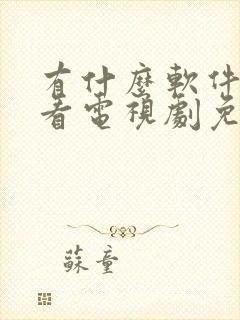 有什麼軟件
看電視劇免
蘇童